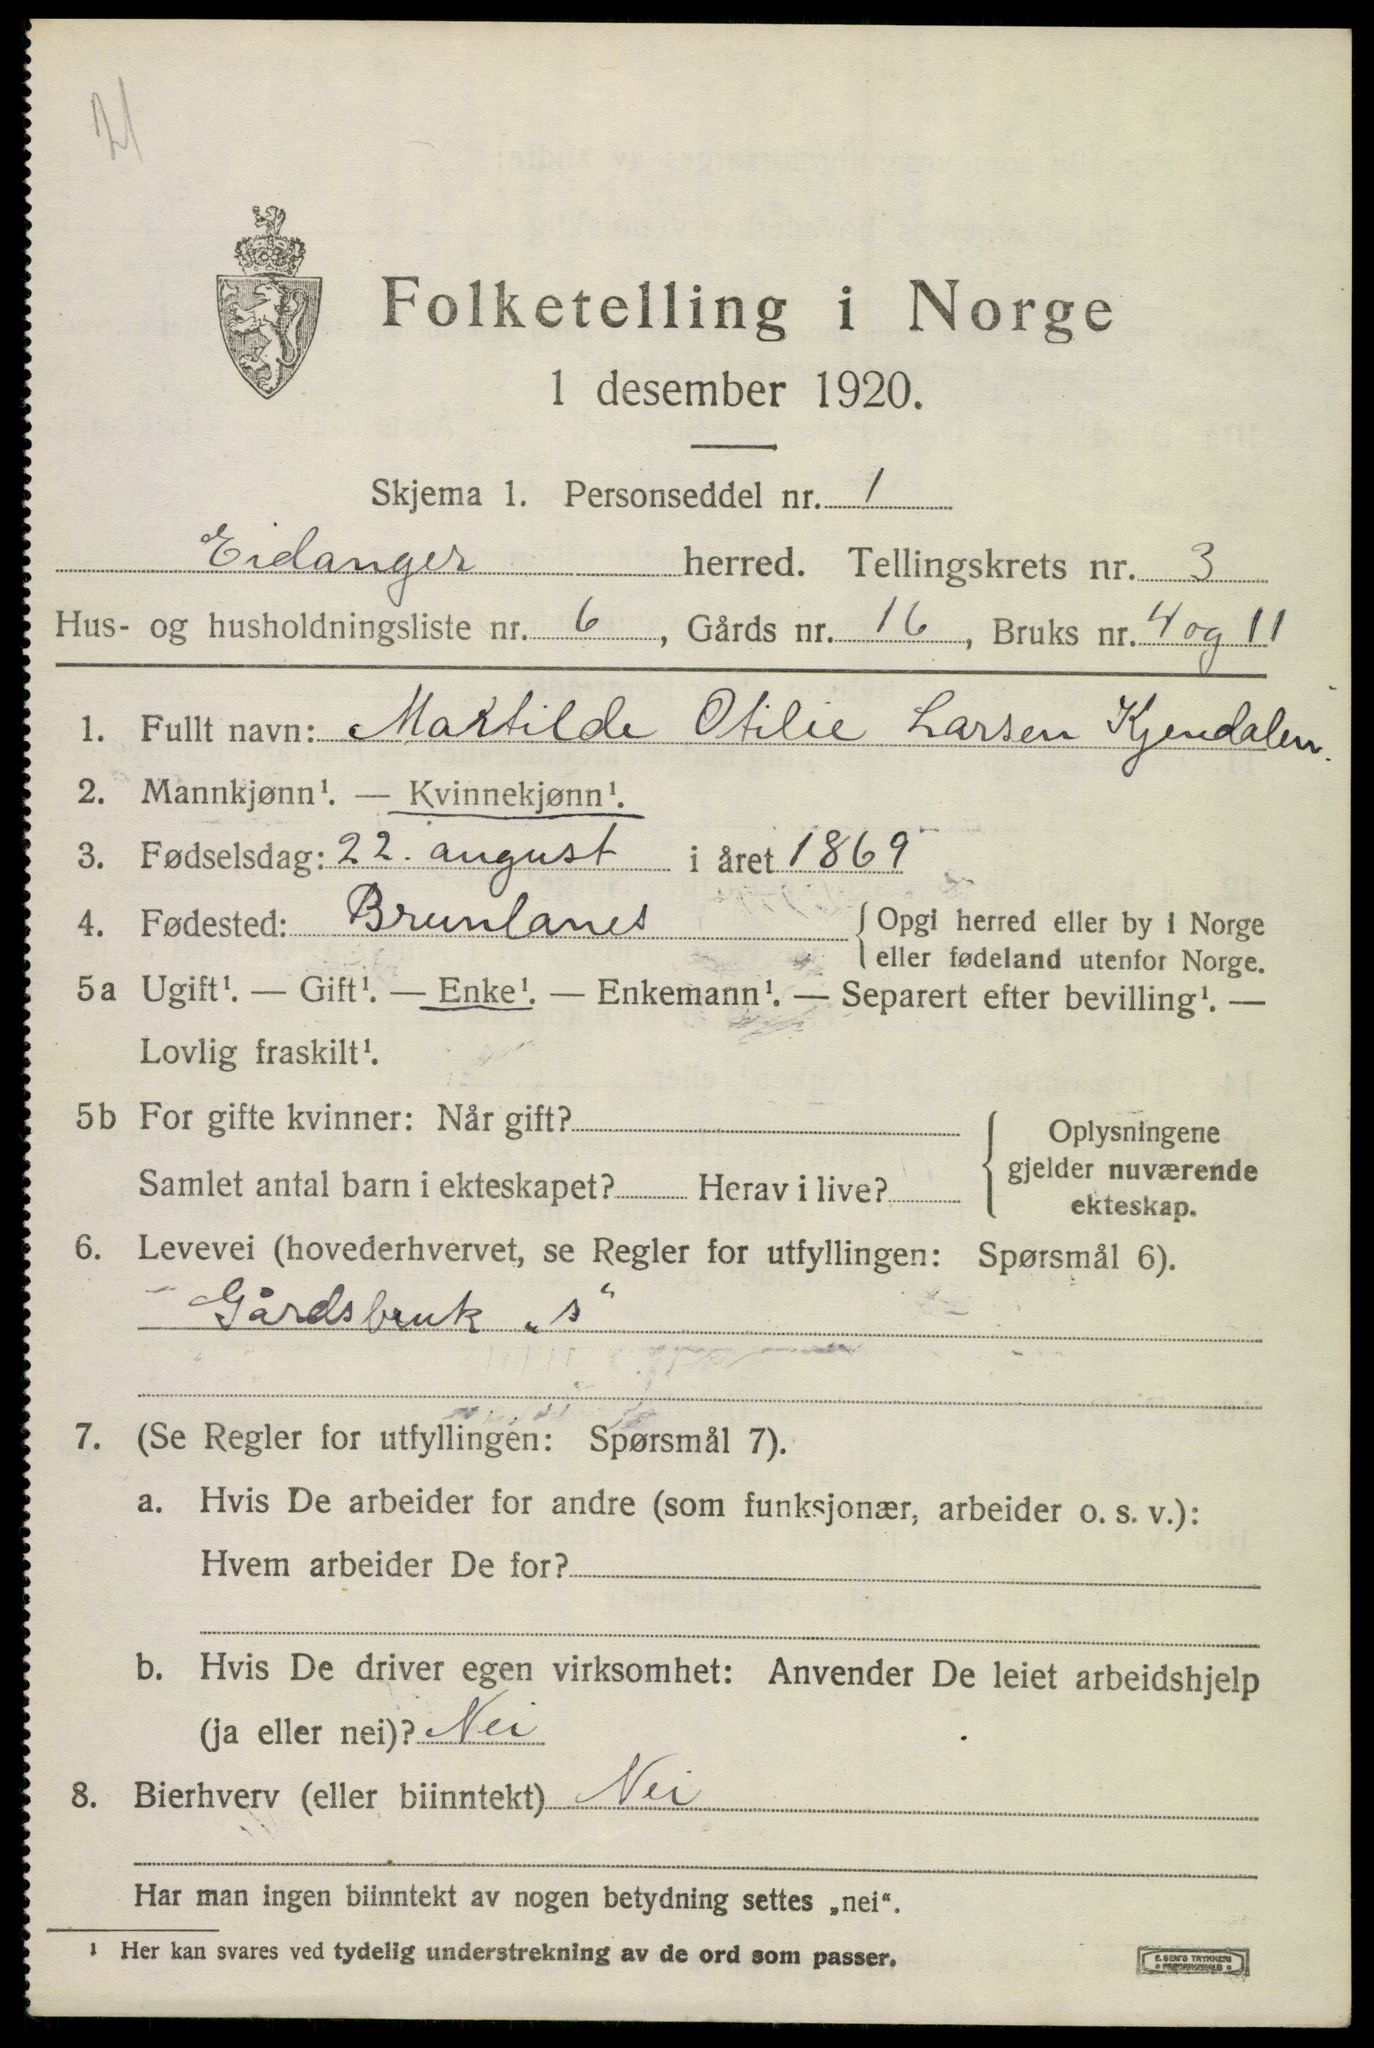 21
Folketelling i Norge
1 desember 1920.
Skjema 1. Personseddel nr. 1
Eidanger herred. Tellingskrets nr. 3
Hus- og husholdningsliste nr. 6, Gårds nr. 16, Bruks nr. 4 og 11
1. Fullt navn: Maktilde Otilie Larsen Kjendalen.
2. Mannkjønn¹. — Kvinnekjønn¹.
3. Fødselsdag: 22. august i året 1869
4. Fødested: Brunlanes { Opgi herred eller by i Norge
eller fødeland utenfor Norge.
5a Ugift¹. — Gift¹. — Enke¹. — Enkemann¹. — Separert efter bevilling¹. —
Lovlig fraskilt¹.
5b For gifte kvinner: Når gift?
Samlet antal barn i ekteskapet? Herav i live?
{ Oplysningene
gjelder nuværende
ekteskap.
6. Levevei (hovederhvervet, se Regler for utfyllingen: Spørsmål 6).
Gårdsbruk „s“
7. (Se Regler for utfyllingen: Spørsmål 7).
a. Hvis De arbeider for andre (som funksjonær, arbeider o. s. v.):
Hvem arbeider De for?
b. Hvis De driver egen virksomhet: Anvender De leiet arbeidshjelp
(ja eller nei)? Nei
8. Bierhverv (eller biinntekt) Nei
Har man ingen biinntekt av nogen betydning settes „nei“.
¹ Her kan svares ved tydelig understrekning av de ord som passer.